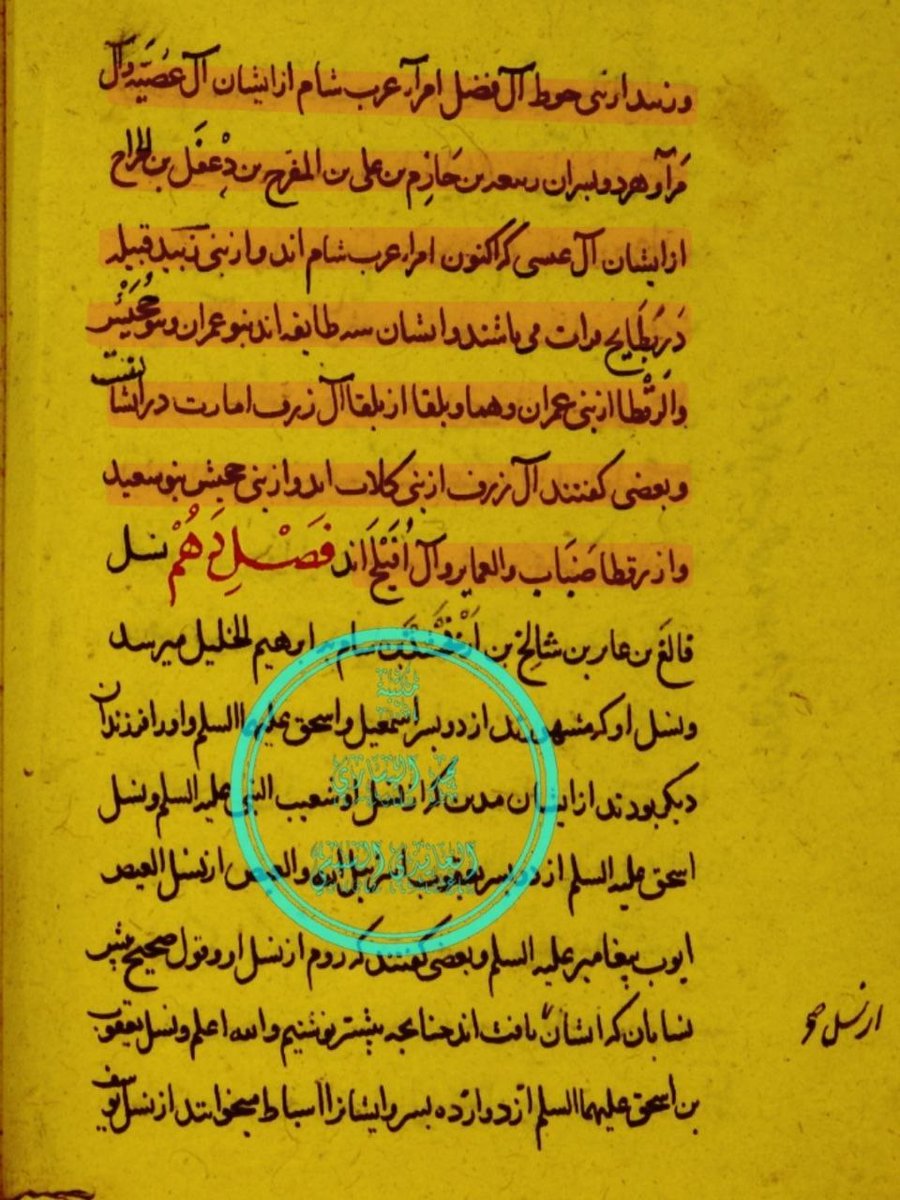 و زبید از بنی حوط آل فضل امرآء عرب شام از ایشان آل عصیّه و آل
مرآ و هر دو پسران ربیعه بن حَازِم بن علی بن المفرح بن دِغفَل بن الجراح
از ایشان آل عیسی که اکنون امراء عرب شام اند و از بنی زبید قبیله
دَر بَطَایِح فرات می باشند و ایشان سه طایفه اند بنو عمران و بنو جُحَیْش
والرّقطا از بنی عمران و هبا و بلقا از بلقا آل زریف امارت در ایشانست
و بعضی کفتند آل زریف از بنی کلاب اند و از بنی جحیش بنو سعید
و از رقطا ضَبَاب والعمایر و آل اُفَیْلَح اند فَصْلِ دَهُمْ نسل
فالغ بن عابر بن شالخ بن ارفخشد بن سام به ابرهیم الخلیل میرسد
و نسل او که مشهورند از دو پسر اسمعیل و اسحق علیهما السلم و او را فرزندان
دیکر بودند از ایشان مدین که از نسل او شعیب النبی علیه السلم و نسل
اسحق علیه السلم از دو پسر یعقوب والعیص از نسل العیص
ایوب پیغامبر علیه السلم و بعضی کفتند که روم از نسل او و قول صحیح پیش
نسابان که ایشان یافث اند چنانچه پیشتر نوشتیم والله اعلم و نسل یعقوب
بن اسحق علیهما السلم از دوازده پسر و ایشانرا اسباط میخوانند از نسل یوسف
از نسل صح
مكتبة